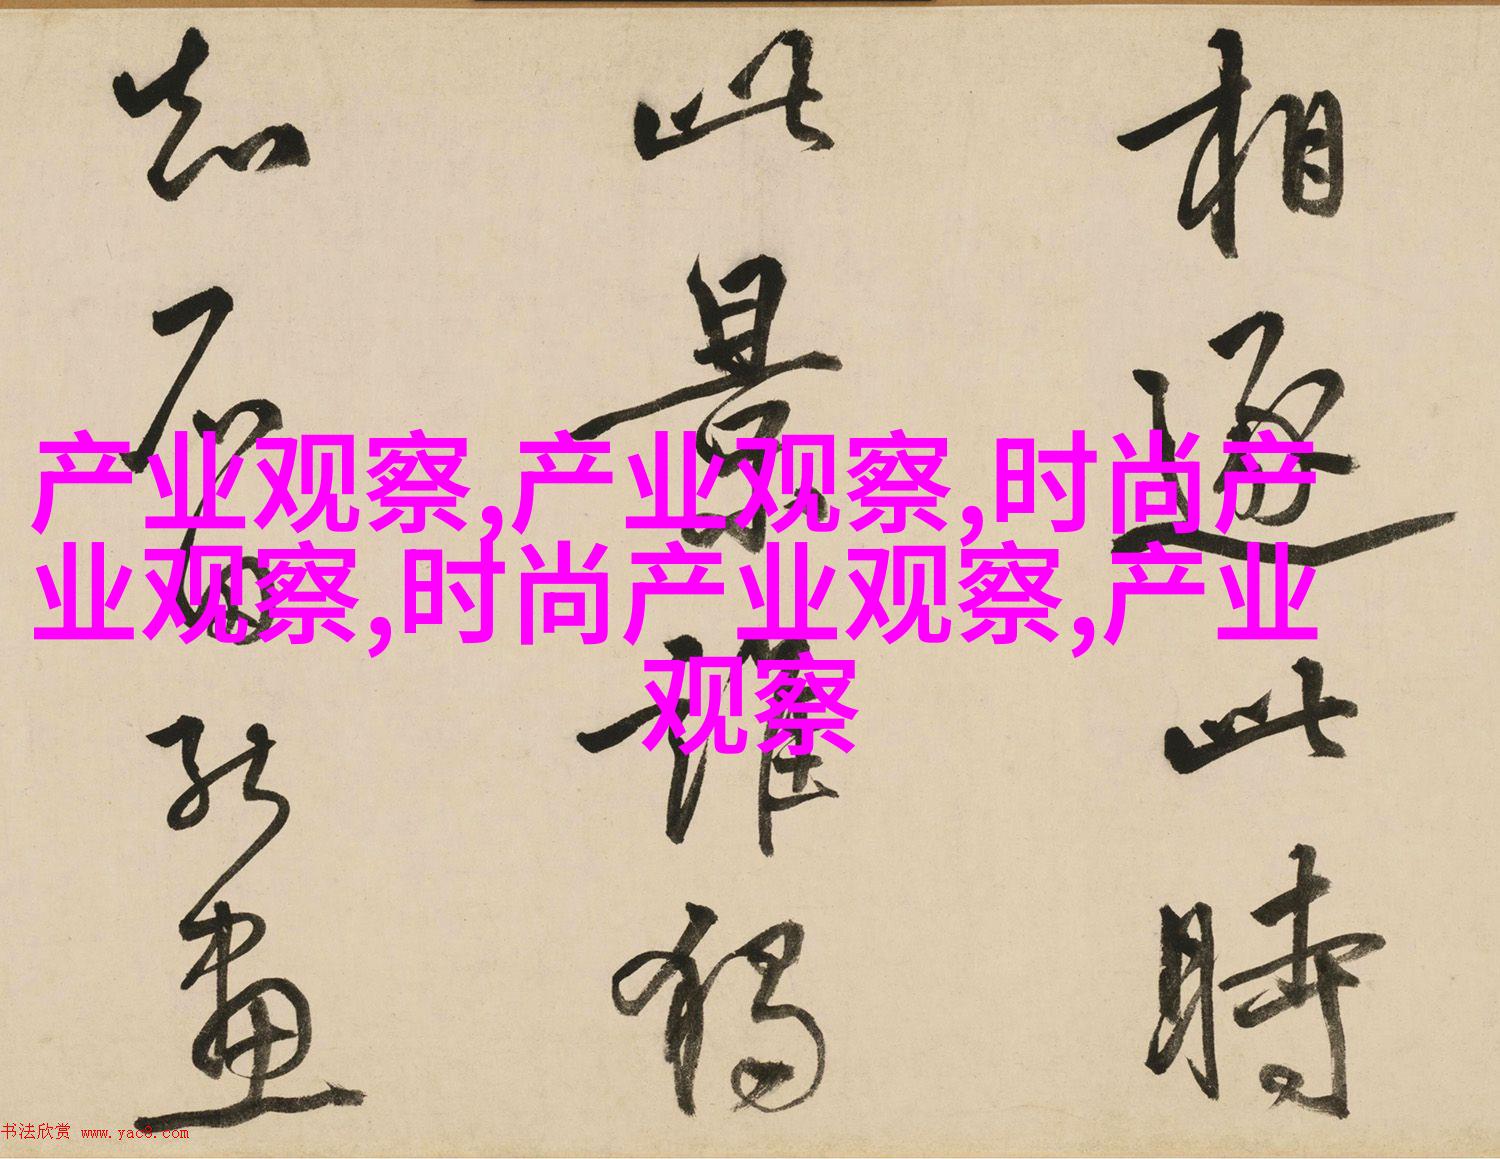 相逐此時
此景誰獨
知能畫
产业观察,产业观察,时尚产
业观察,时尚产业观察,产业
观察
书法欣赏 www.yac8.com